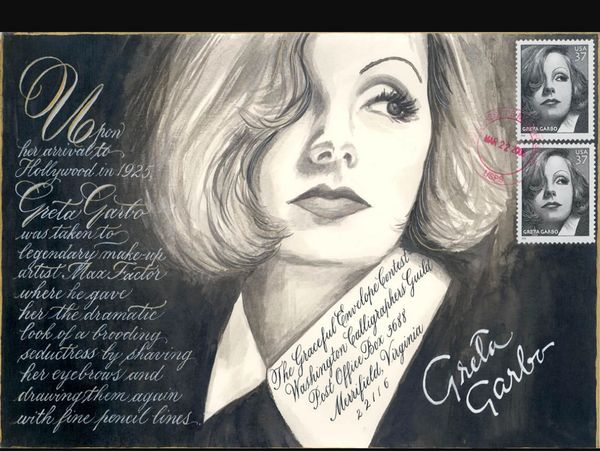 Upon
her arrival to
Hollywood in 1925,
Greta Garbo
was taken to
legendary make-up
artist Max Factor
where he gave
her the dramatic
look of a brooding
seductress by shaving
her eyebrows and
drawing them again
with fine pencil lines.
The Graceful Envelope Contest
Washington Calligraphers Guild
Post Office Box 3688
Merrifield, Virginia
22116
Greta
Garbo
USA
37
GRETA GARBO
MAR 22
USPS
USA
37
GRETA GARBO